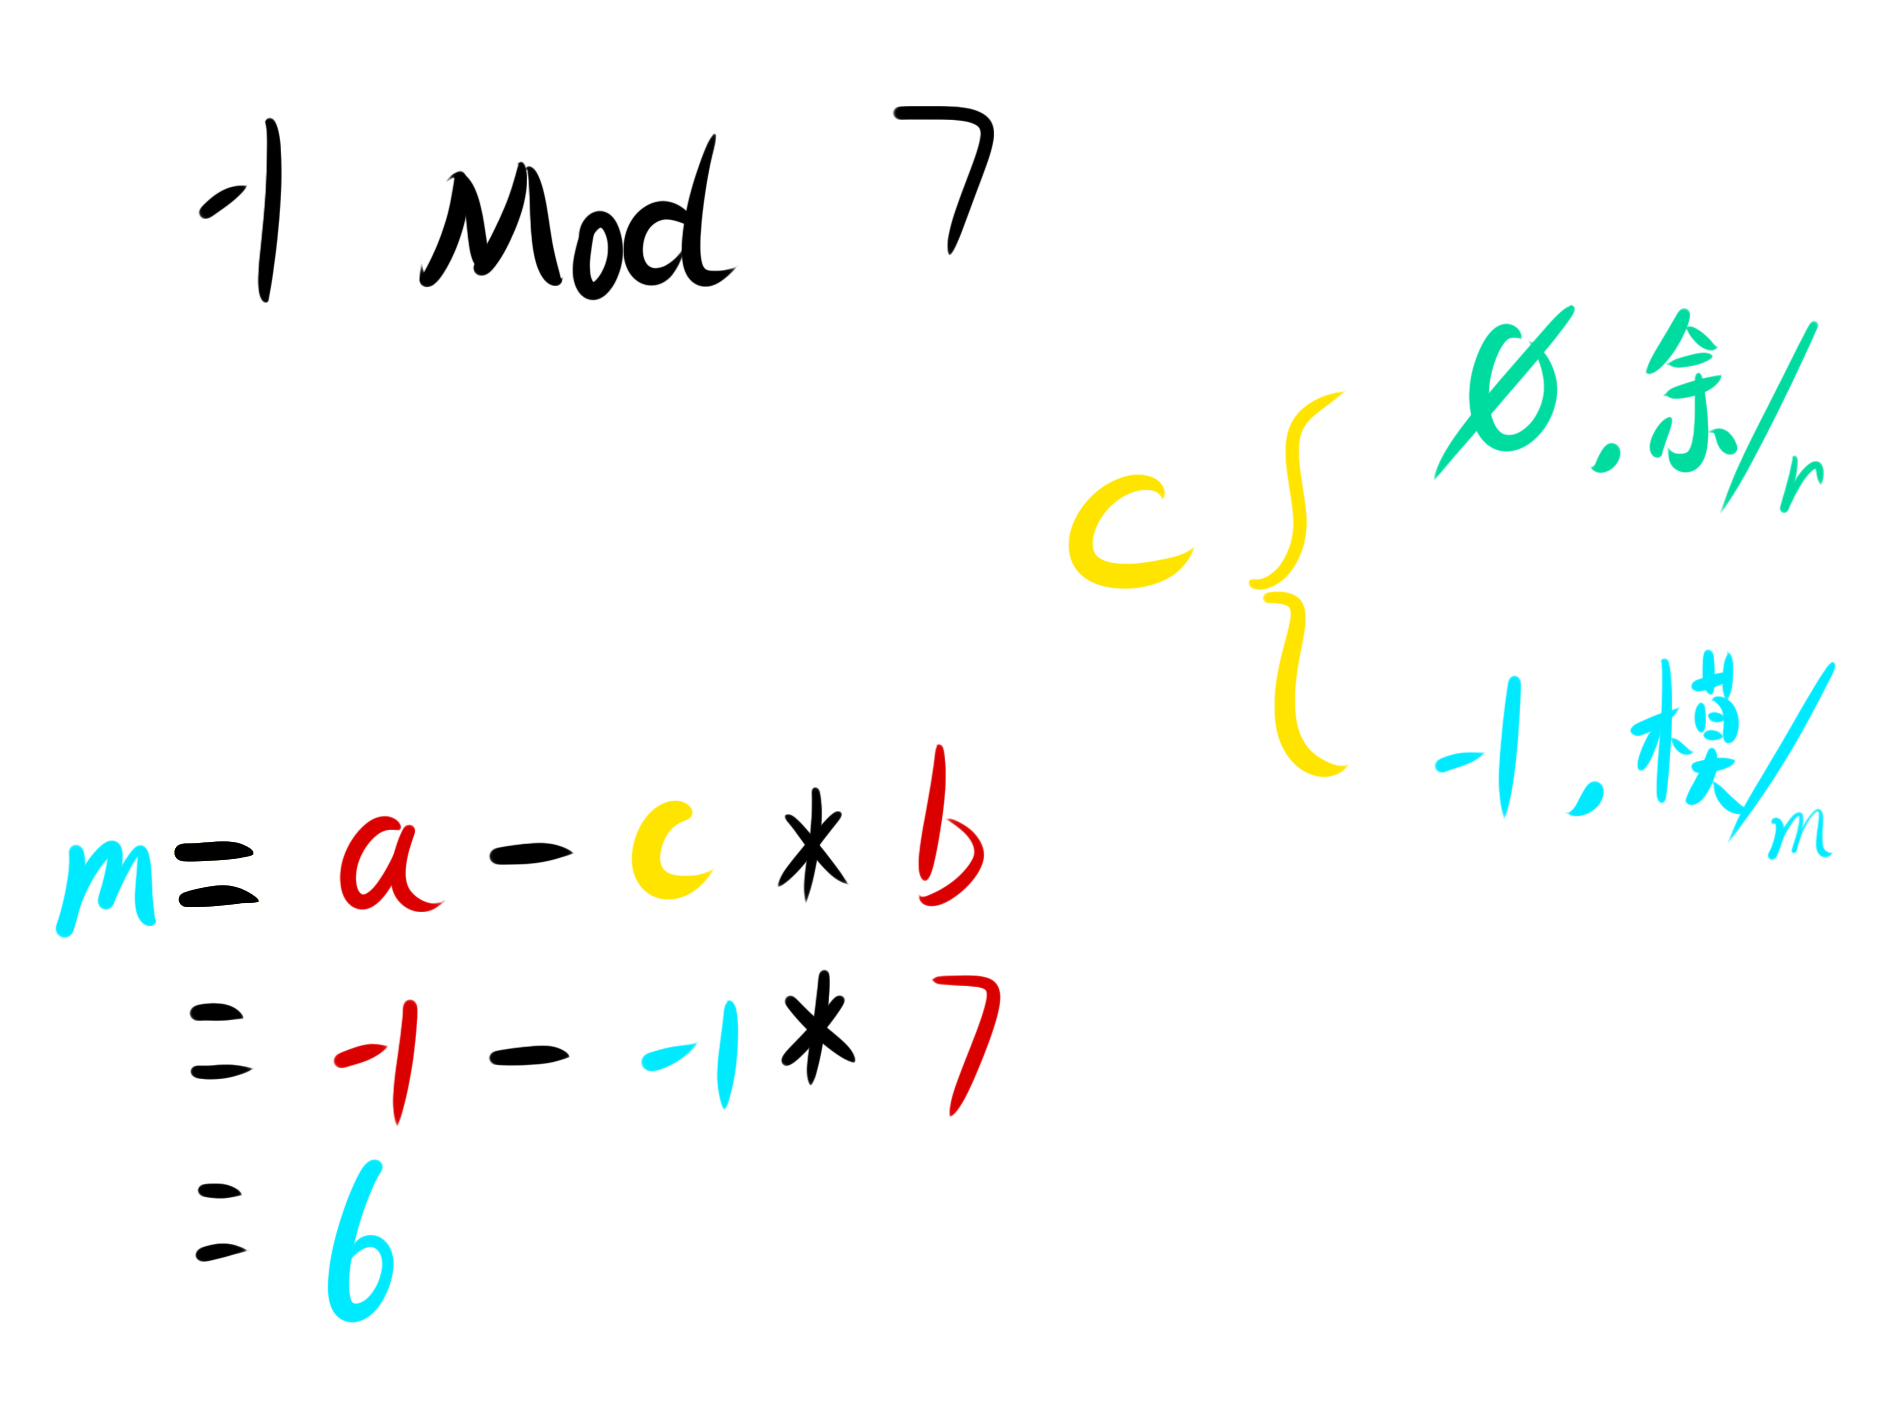 -1 Mod 7
0,余/r
c{
-1,模/m
m= a - c * b
= -1 - -1 * 7
= 6